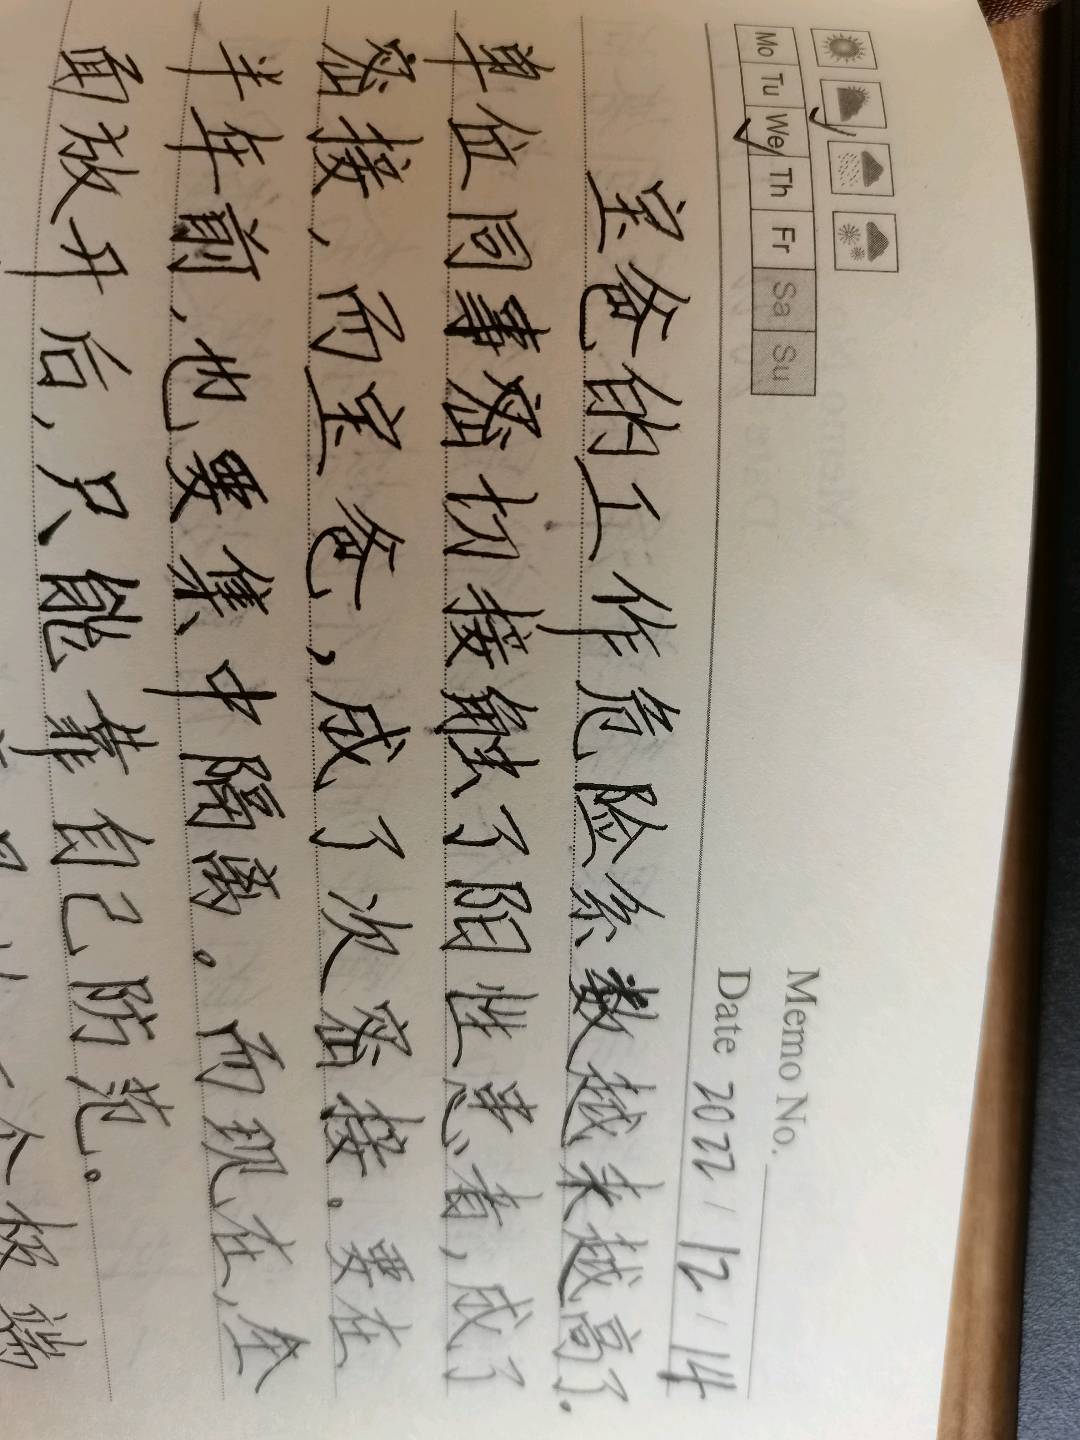 Memo No.
Mo Tu We Th Fr Sa Su
Date 2022 / 12 / 14
宝爸的工作危险系数越来越高了.
单位同事密切接触了阳性患者,成了
密接,而宝爸,成了次密接。要在
半年前,也要集中隔离。而现在,全
面放开后,只能靠自己防范。
个极端